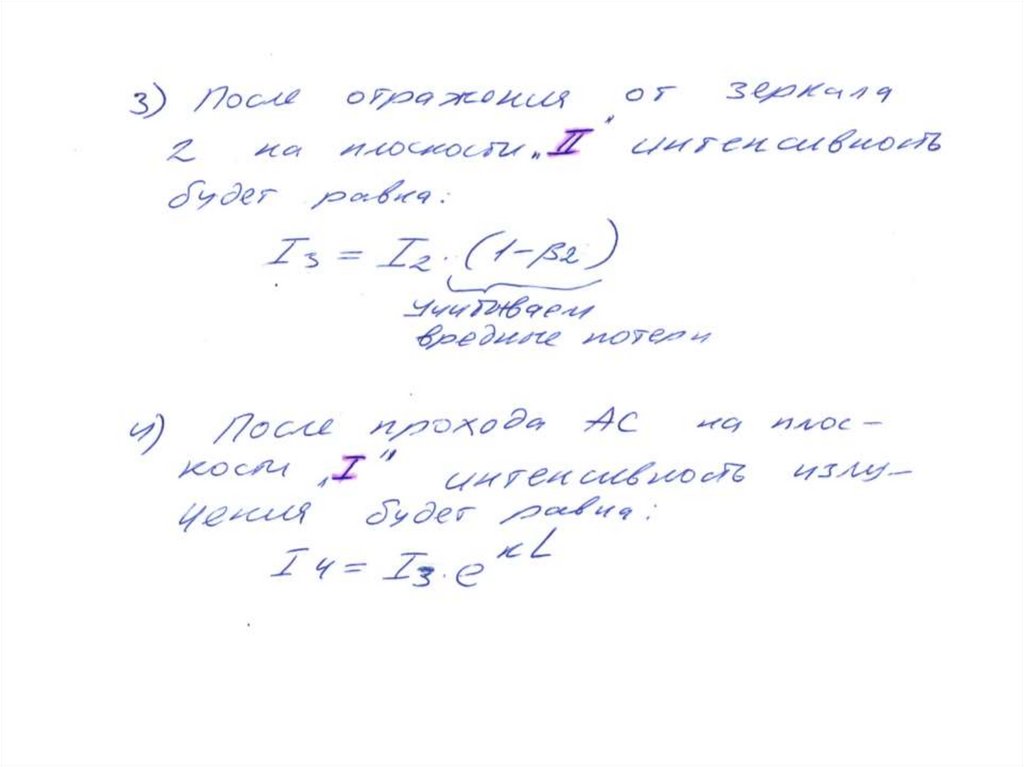 3) После отражения от зеркала
2 на плоскости „II" интенсивность
будет равна:
I3 = I2 · (1-β2)
учитываем
вредные потери
4) После прохода АС на плос-
кости „I" интенсивность излу-
чения будет равна:
I4 = I3 · e^кL